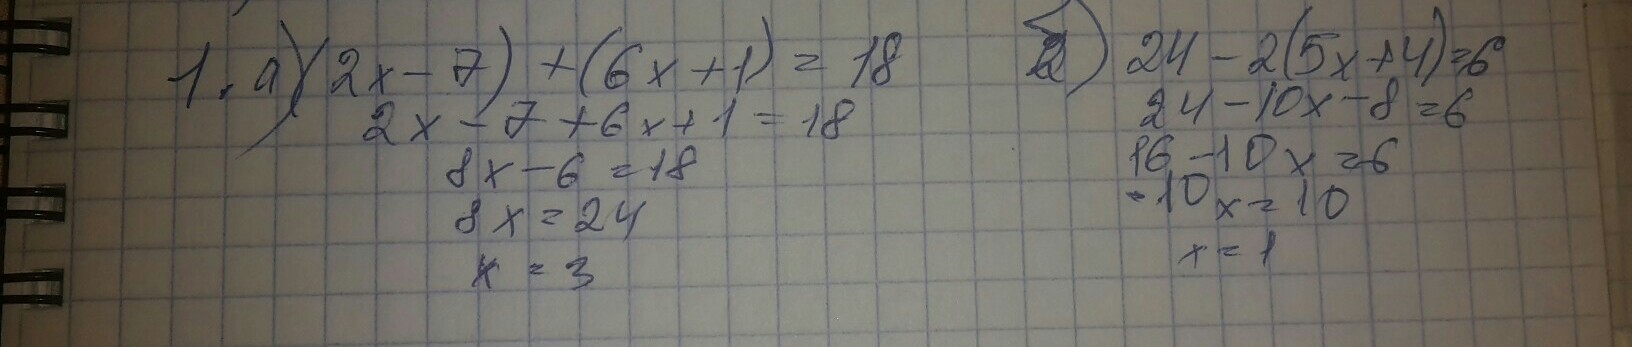 1. а) (2x - 7) + (6x + 1) = 18
2x - 7 + 6x + 1 = 18
8x - 6 = 18
8x = 24
x = 3
б) 24 - 2(5x + 4) = 6
24 - 10x - 8 = 6
16 - 10x = 6
-10x = 10
x = 1